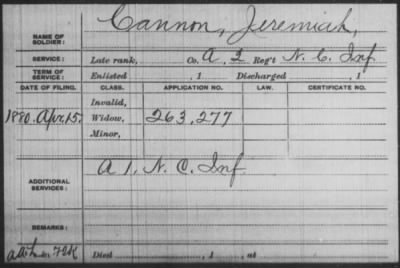 NAME OF SOLDIER: Cannon, Jeremiah,
SERVICE: Late rank, Co. A, 2 Reg't N. C. Inf
TERM OF SERVICE: Enlisted , 1 Discharged , 1
DATE OF FILING. CLASS. APPLICATION NO. LAW. CERTIFICATE NO.
Invalid,
1880. Apr. 15. Widow, 263,277
Minor,
ADDITIONAL SERVICES: A 1, N. C. Inf
REMARKS:
Died , 1 , at